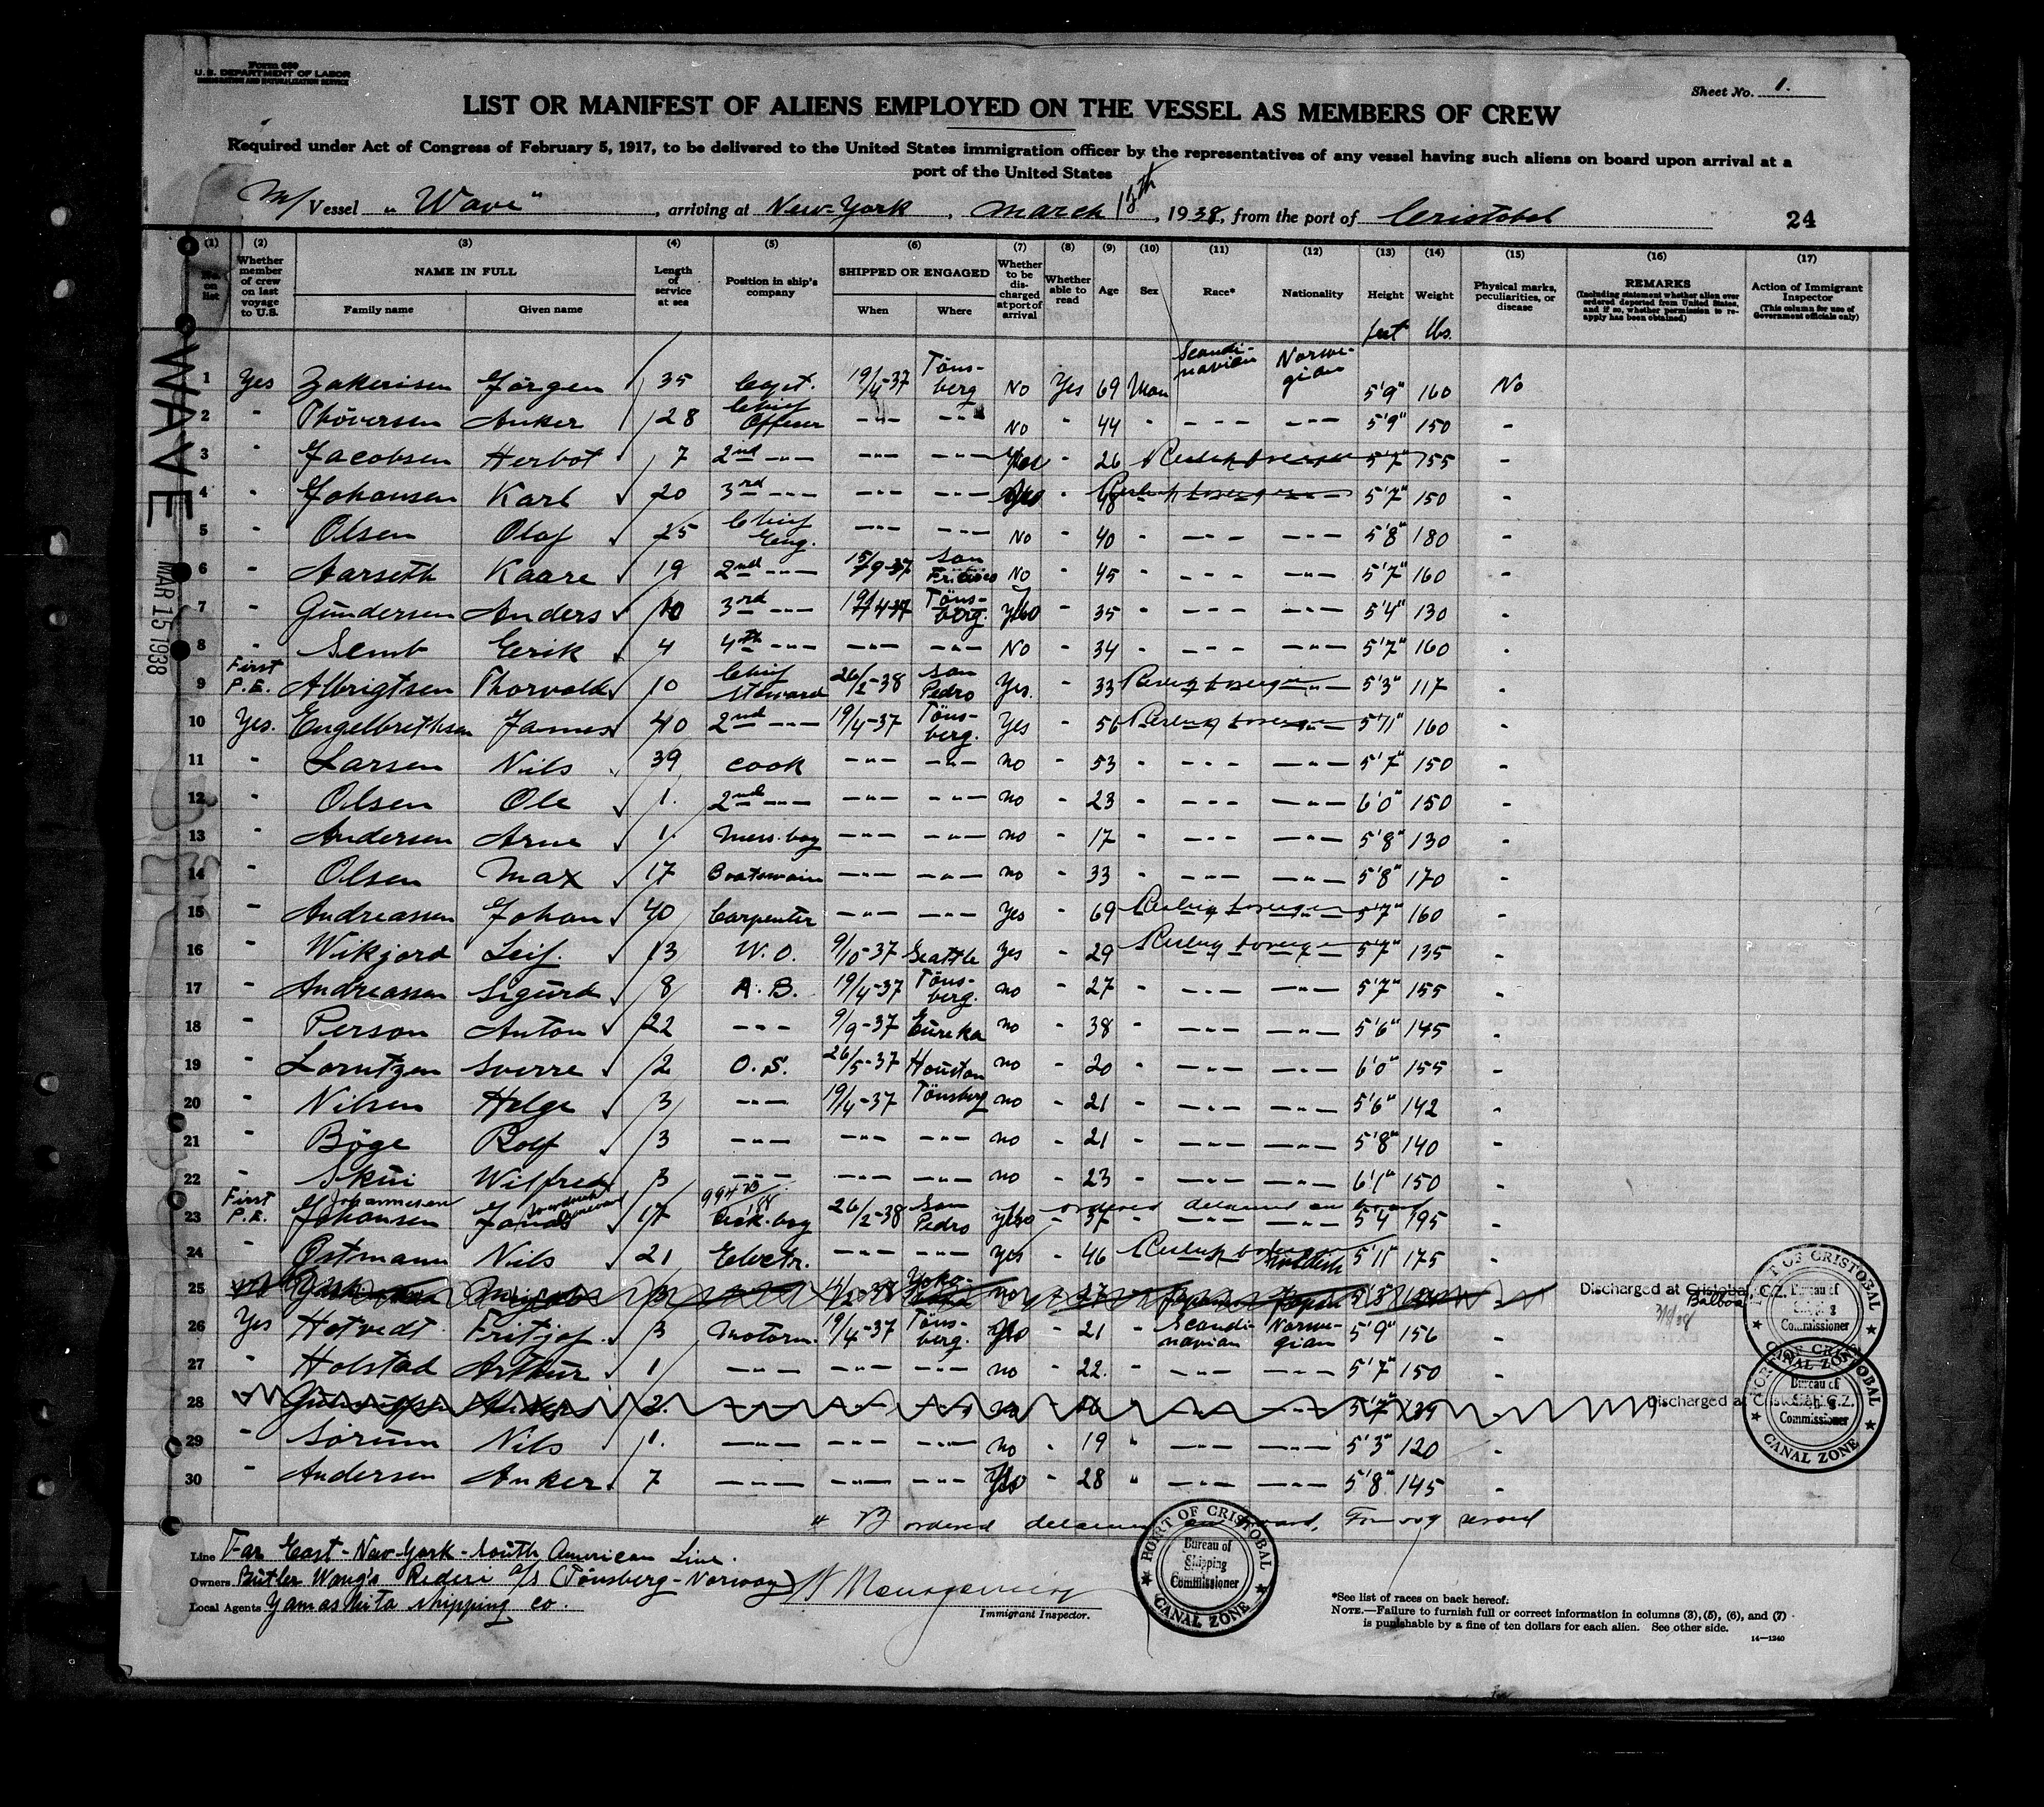 Form 680
U. S. DEPARTMENT OF LABOR
IMMIGRATION AND NATURALIZATION SERVICE
Sheet No. 1.
LIST OR MANIFEST OF ALIENS EMPLOYED ON THE VESSEL AS MEMBERS OF CREW
Required under Act of Congress of February 5, 1917, to be delivered to the United States immigration officer by the representatives of any vessel having such aliens on board upon arrival at a
port of the United States
M/ Vessel "Wave", arriving at New-York, March 15th, 1938, from the port of Cristobal
24
WAVE
MAR 15 1938
(1) (2) (3) (4) (5) (6) (7) (8) (9) (10) (11) (12) (13) (14) (15) (16) (17)
No. on list
Whether member of crew on last voyage to U.S.
NAME IN FULL
Family name
Given name
Length of service at sea
Position in ship's company
SHIPPED OR ENGAGED
When
Where
Whether to be discharged at port of arrival
Whether able to read
Age
Sex
Race*
Nationality
Height
Weight
Physical marks, peculiarities, or disease
REMARKS
(Including statement whether alien ever ordered deported from United States, and if so, whether permission to reapply has been obtained)
Action of Immigrant Inspector
(This column for use of Government officials only)
feet lbs.
1 Yes Zakerisen Jörgen 35 Capt. 19/4-37 Töns-berg No Yes 69 Man Scandi-navian Norwe-gian 5'9" 160 No
2 " Thöversen Anker 28 Chief Officer -"- -"- No " 44 " -"- -"- 5'9" 150 "
3 " Jacobsen Herbot 7 2nd -"- -"- -"- Yes " 26 5'7" 155 "
4 " Johansen Karl 20 3rd -"- -"- -"- " 48 " 5'7" 150 "
5 " Olsen Olaf 25 Chief Eng. -"- -"- No " 40 " -"- -"- 5'8" 180 "
6 " Aarseth Kaare 19 2nd -"- 15/9-37 San No " 45 " -"- -"- 5'7" 160 "
7 " Gundersen Anders 10 3rd -"- 19/4-37 Töns-berg. " 35 " -"- -"- 5'4" 130 "
8 " Semb Erik 4 4th -"- -"- -"- No " 34 " -"- -"- 5'7" 160 "
9 First P.E. Albrigtsen Thorvald 10 Chief Steward 26/2-38 San Pedro Yes. " 33 -"- 5'3" 117 "
10 Yes. Engelbrethsen James 40 2nd -"- 19/4-37 Töns-berg. Yes " 56 -"- 5'11" 160 "
11 " Larsen Nils 39 cook -"- -"- no " 53 " -"- -"- 5'7" 150 "
12 " Olsen Ole 1. 2nd -"- -"- -"- no " 23 " -"- -"- 6'0" 150 "
13 " Andersen Arne 1. Mess-boy -"- -"- no " 17 " -"- -"- 5'8" 130 "
14 " Olsen Max 17 Boatswain -"- -"- no " 33 " -"- -"- 5'8" 170 "
15 " Andreassen Johan 40 Carpenter -"- -"- Yes " 69 -"- 5'7" 160 "
16 " Wikjord Leif. 13 W. O. 9/10-37 Seattle Yes " 29 -"- 5'7" 135 "
17 " Andreassen Sigurd 8 A. B. 19/4-37 Töns-berg. no " 27 " -"- -"- 5'7" 155 "
18 " Person Anton 22 -"- 9/9-37 Eureka no " 38 " -"- -"- 5'6" 145 "
19 " Lorntzen Sverre 2 O. S. 26/5-37 Houston no " 20 " -"- -"- 6'0" 155 "
20 " Nilsen Helge 3 -"- 19/4-37 Tönsberg no " 21 " -"- -"- 5'6" 142 "
21 " Böge Rolf 3 -"- -"- -"- no " 21 " -"- -"- 5'8" 140 "
22 " Skui Wilfred 3 -"- -"- -"- no " 23 " -"- -"- 6'1" 150 "
23 First P.E. Johannesen Johansen 17 Deck-boy 26/2-38 San Pedro " 37 ordered detained on board 5'4 195 "
24 " Östmann Nils 21 Electr. -"- -"- yes " 46 5'11" 175 "
25 27 5'3" Discharged at Cristobal, C.Z. Balboa
26 Yes Hotvedt Fritjof 3 Motorm. 19/4-37 Töns-berg. " 21 " Scandi-navian Norwe-gian 5'9" 156 "
27 " Holstad Arthur 1 -"- -"- -"- no " 22. -"- -"- 5'7" 150 "
28 " 2. 5'7" 139 Discharged at Cristobal, C.Z.
29 " Sörum Nils 1. -"- -"- -"- no " 19 " -"- -"- 5'3" 120 "
30 " Andersen Anker 7 -"- -"- -"- " 28 " -"- -"- 5'8" 145 "
ordered detained on board,
PORT OF CRISTOBAL
Bureau of Shipping Commissioner
CANAL ZONE
PORT OF CRISTOBAL
Bureau of Shipping Commissioner
CANAL ZONE
PORT OF CRISTOBAL
Bureau of Shipping Commissioner
CANAL ZONE
Line Far East-New-York-South American Line.
Owners Butler Wang's Rederi a/s (Tönsberg-Norway)
Local Agents Yamashita Shipping co.
Immigrant Inspector.
*See list of races on back hereof.
NOTE.—Failure to furnish full or correct information in columns (3), (5), (6), and (7)
is punishable by a fine of ten dollars for each alien. See other side.
14—1240